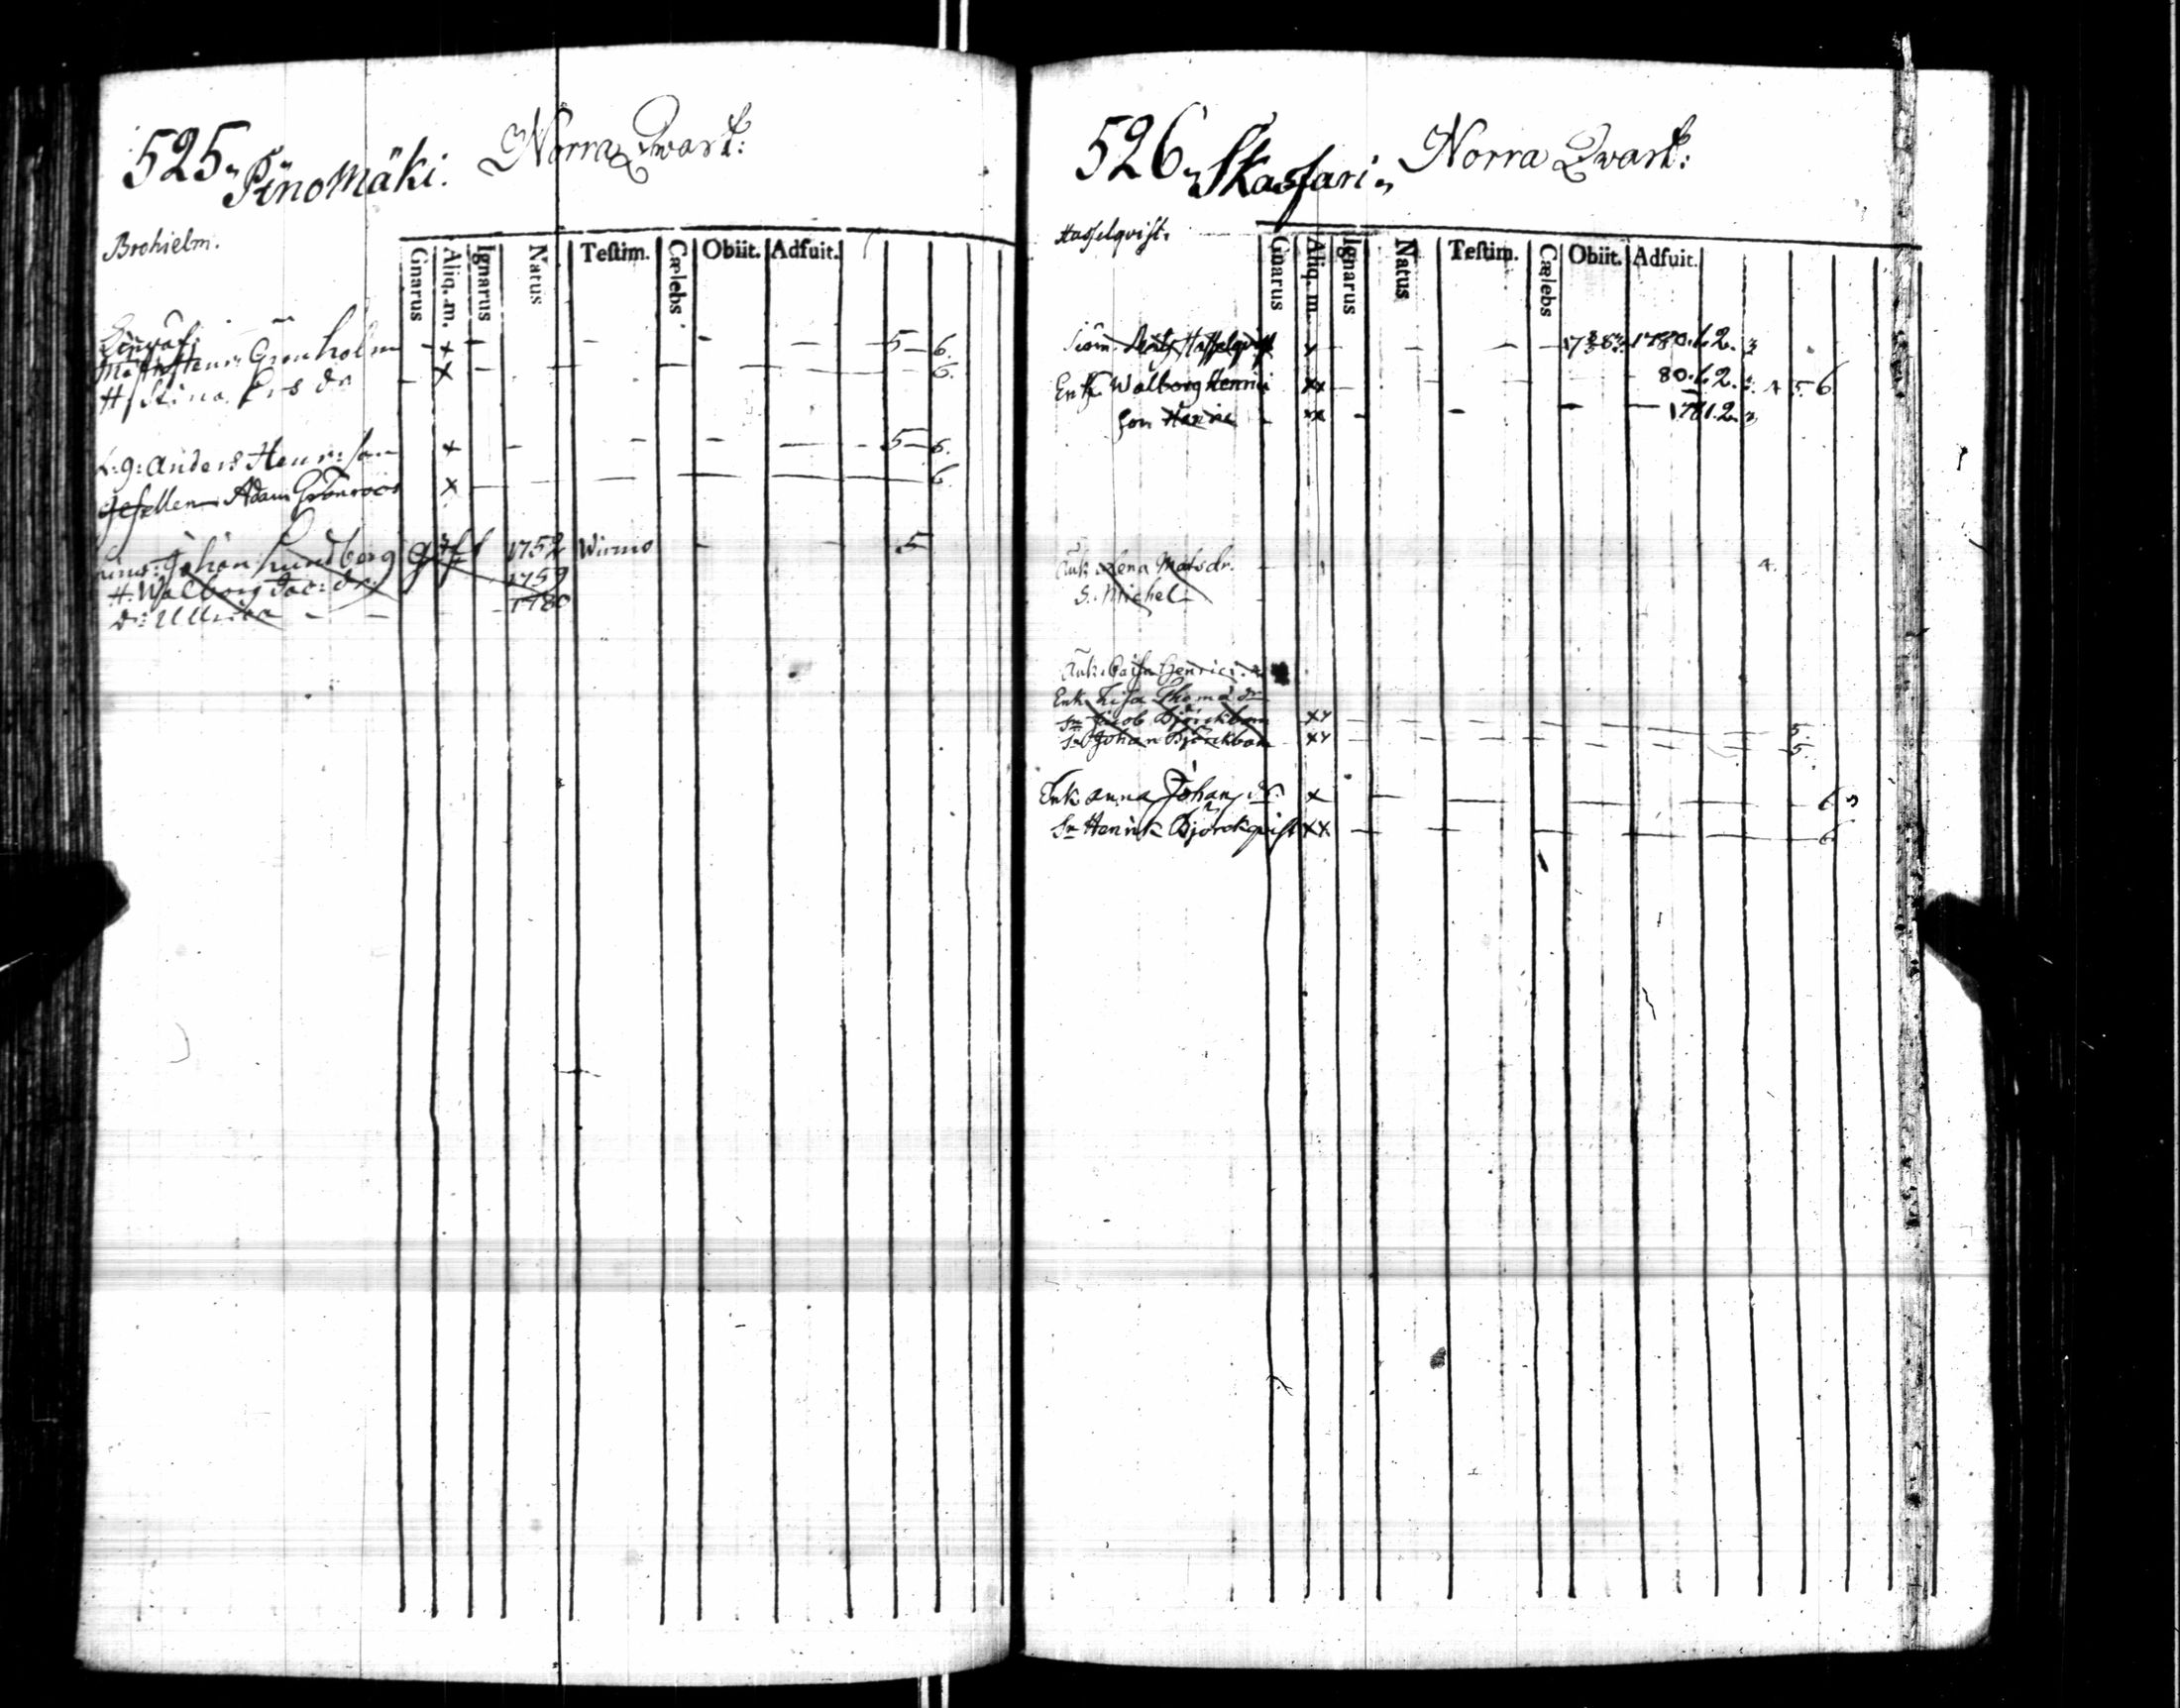 525,, Pinomäki. Norra Qvart:
Brohielm.
Gnarus Aliq. m. Ignarus Natus Teſtim. Cælebs Obiit. Adfuit.
Henr: Grönholm - x - - - - - 5 - 6.
H/ Stina Ers dr - x - - - - 6.
L: g: Anders Henr: son x - - - - - 5 - 6.
Gesellen Adam Grönroos x - - - - - 6
Johan Lundberg 1752 Wirmo - - 5
H. Walborg Jac: dr. 1759
dr: Ullrica - - - 1780
526,, Skaffari,, Norra Qvart:
Hasselqvist.
Gnarus Aliq. m. Ignarus Natus Teſtim. Cælebs Obiit. Adfuit.
Matts Hasselqvist x - - - - 1780.1.2. 3
Enk. Walborg Henrici xx - - 80.1.2. 4 5 6
Son xx - - - - 1781.2. 3
Änk. Lena Matsdr. 4.
S. Michel
Änk. Caisa Henrici
Enk. Lisa Thomæ dr
Sn Jacob Björckbom xx - - - - - 5.
Sn Johan Björckbom xx - - - - - 5.
Enk Anna Johans dr. x - - - - - 6
Sn Henrik Björckqvist xx - - - - - 6